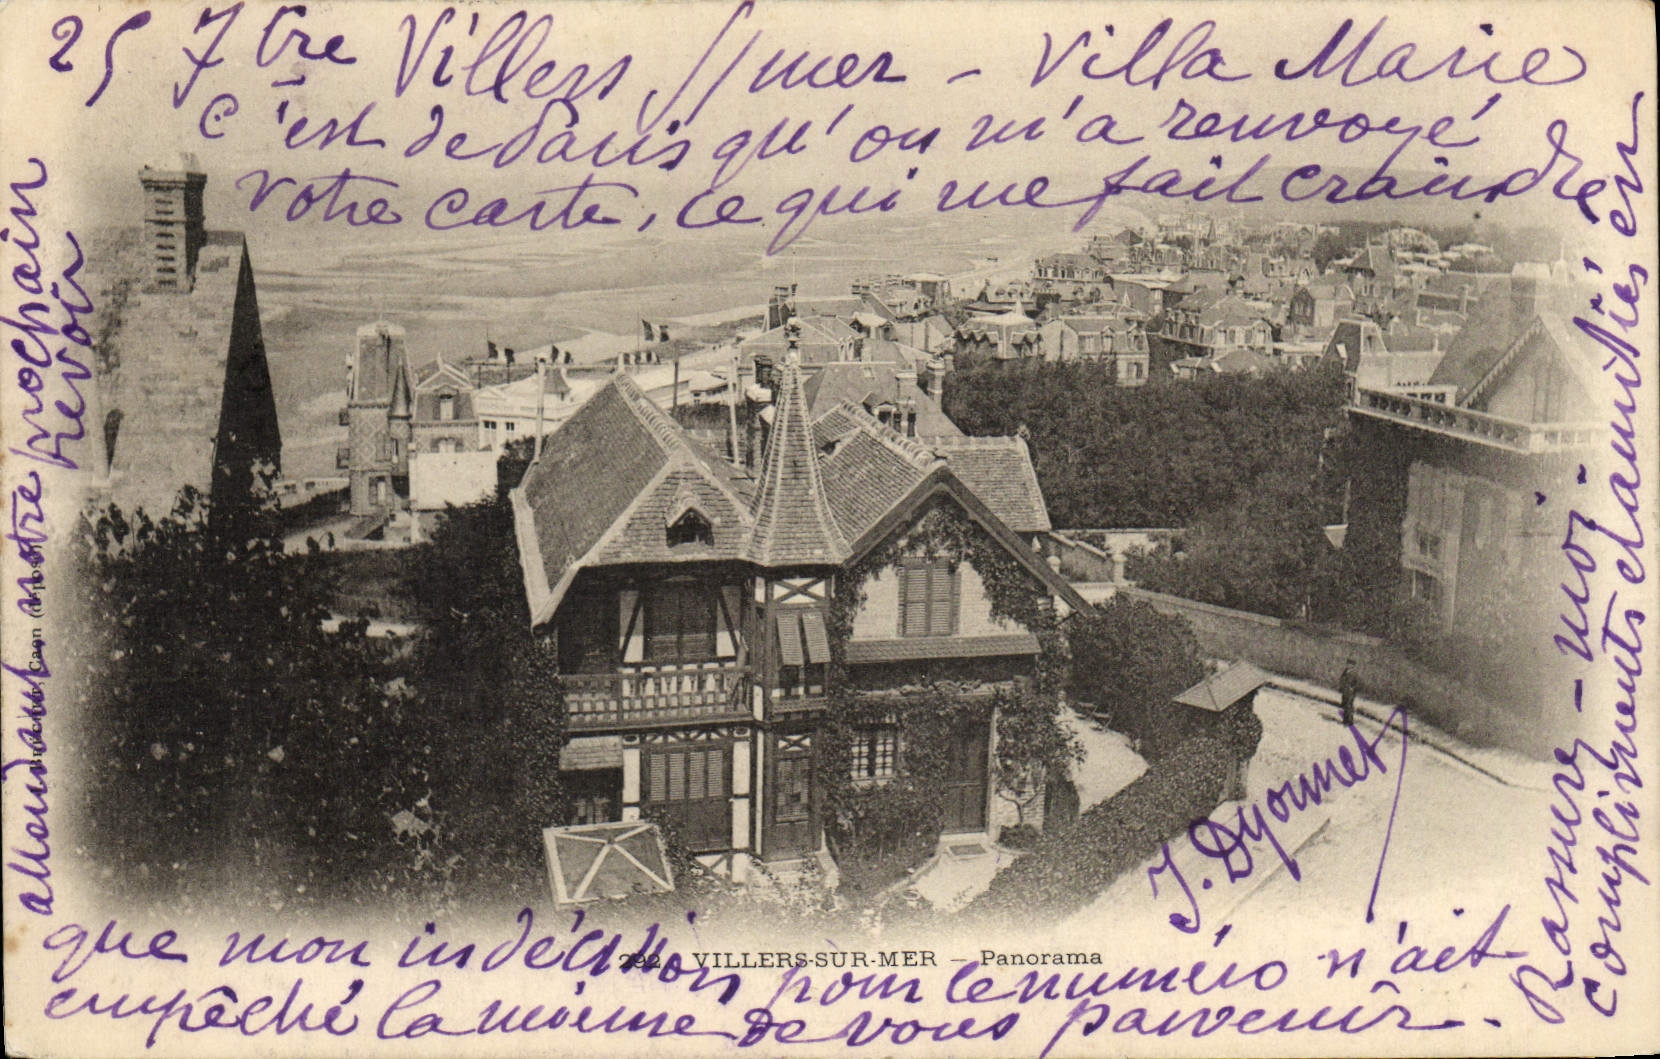 25 7bre Villers s/mer - Villa Marie
c'est de Paris qu'on m'a renvoyé
votre carte, ce qui me fait craindre
que mon indécision pour le numéro n'ait
empêché la mienne de vous parvenir.
Rassurez-moi.
Compliments et amitiés en
attendant notre prochain
revoir
J. Dyonnet
292 VILLERS-SUR-MER — Panorama
Caen (déposé)